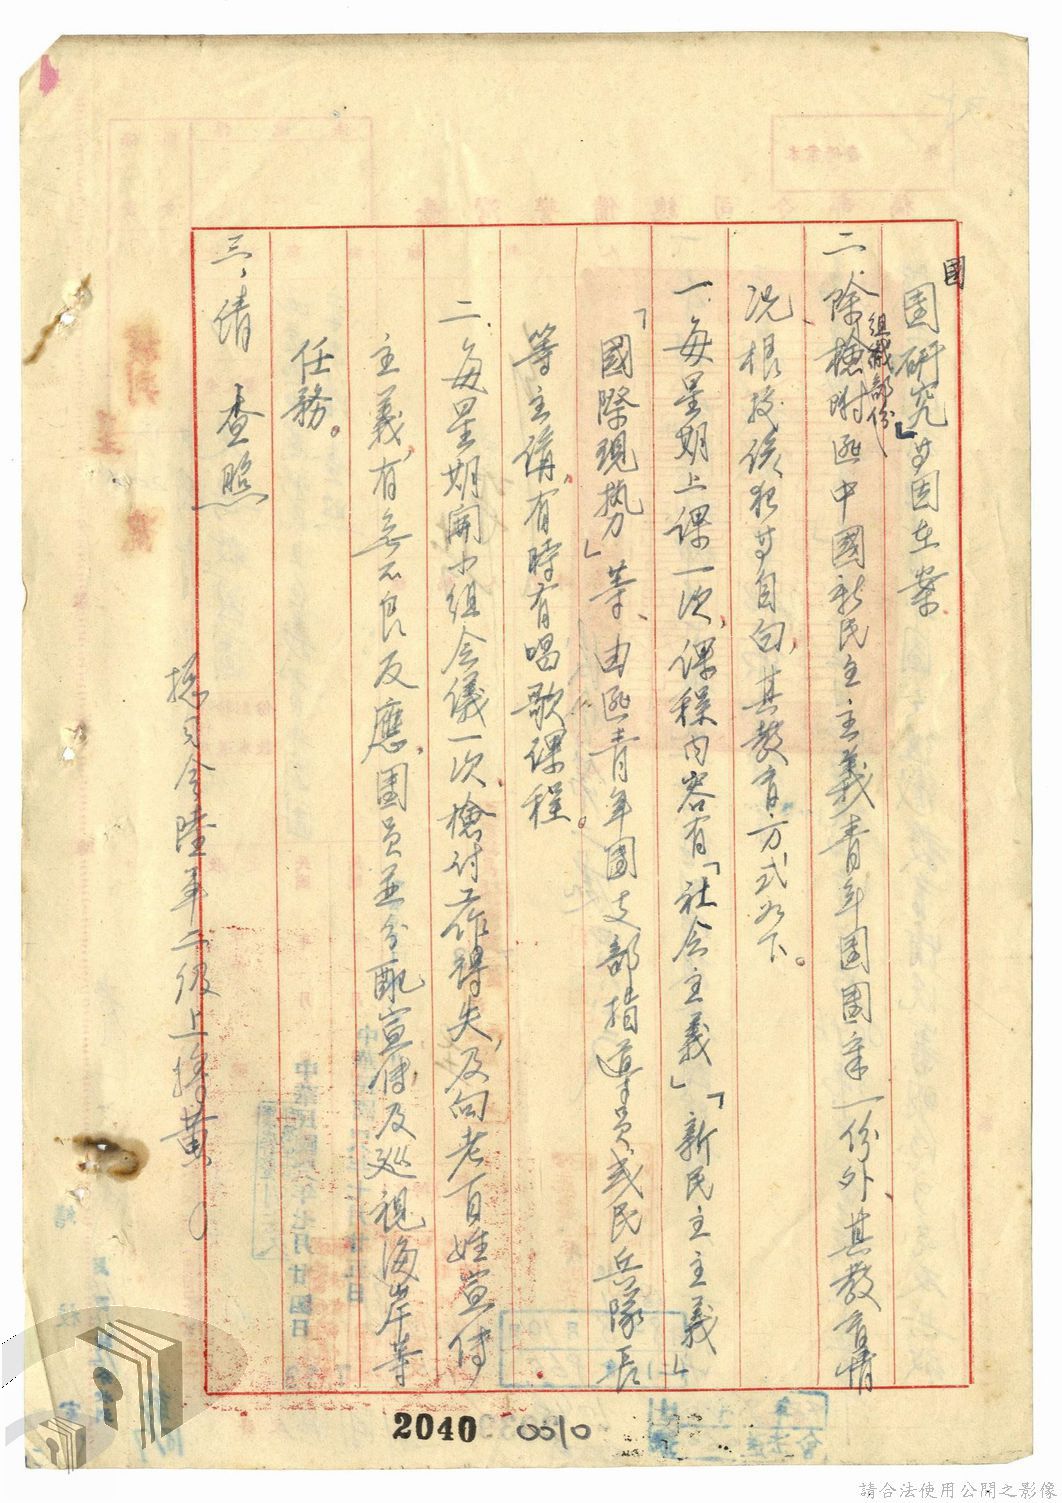 國
團研究」等因在案
組織部份
二、除檢附匪中國新民主主義青年團團章一份外、其教育情
況根按該犯等自白,其教育方式如下。
一、每星期上課一次,課程內容有「社会主義」「新民主主義」
「國際現势」等、由匪青年團支部指導員或民兵隊長
等主講,有時有唱歌課程。
二、每星期開小組会儀一次,檢討工作得失,及向老百姓宣傳
主義,有無不良反應,團員並分配宣傳及巡視海岸等
任務。
三、请 查照
總司令陸軍二级上將黃
中華民國 年七月廿四日
2040
0010
請合法使用公開之影像